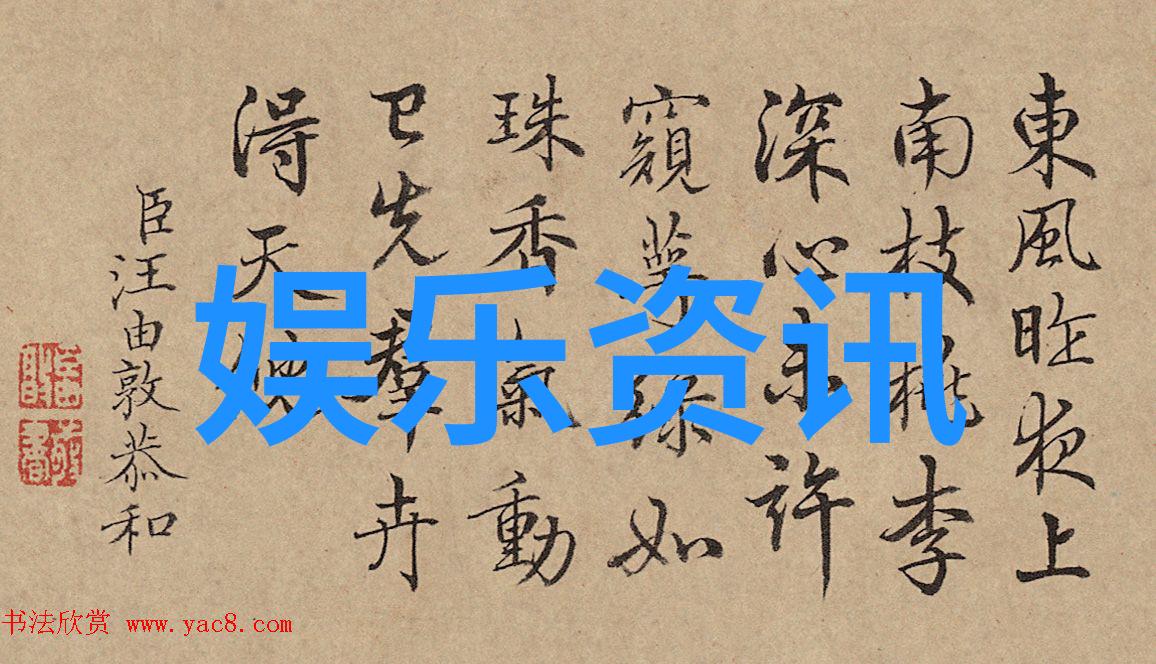 東風昨夜上
南枝桃李
深心未許
窺萼綠如
珠香氣動
已先羣卉
得天
臣汪由敦恭和
娱乐资讯
书法欣赏 www.yac8.com